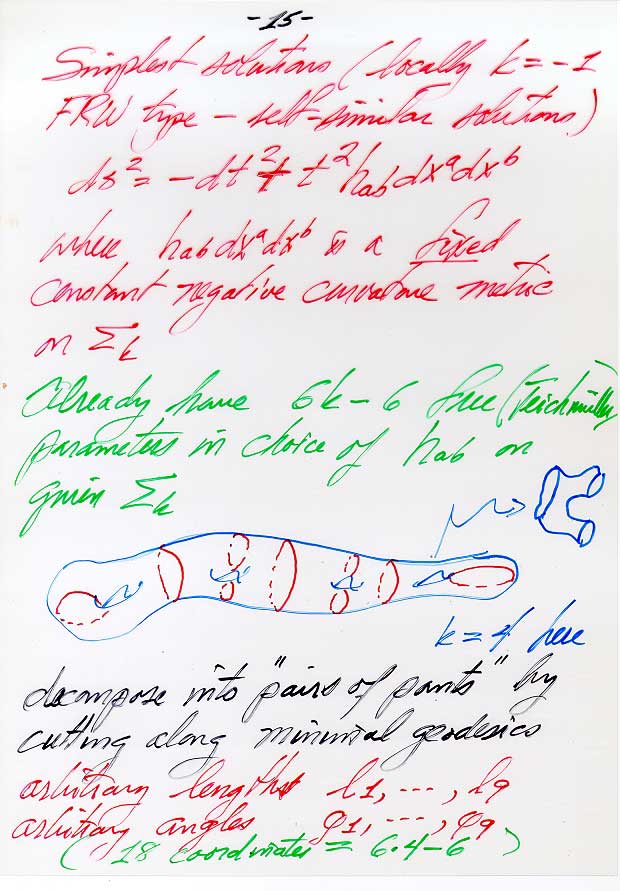 -15-
Simplest solutions (locally k = -1
FRW type - self-similar solutions)
ds² = -dt² + t² hab dxᵃ dxᵇ
where hab dxᵃ dxᵇ is a fixed
constant negative curvature metric
on Σk
Already have 6k-6 free (Teichmüller
parameters in choice of hab on
given Σk
k=4 here
decompose into "pairs of pants" by
cutting along minimal geodesics
arbitrary lengths l1, ---, l9
arbitrary angles φ1, ---, φ9
(18 coordinates = 6·4-6)